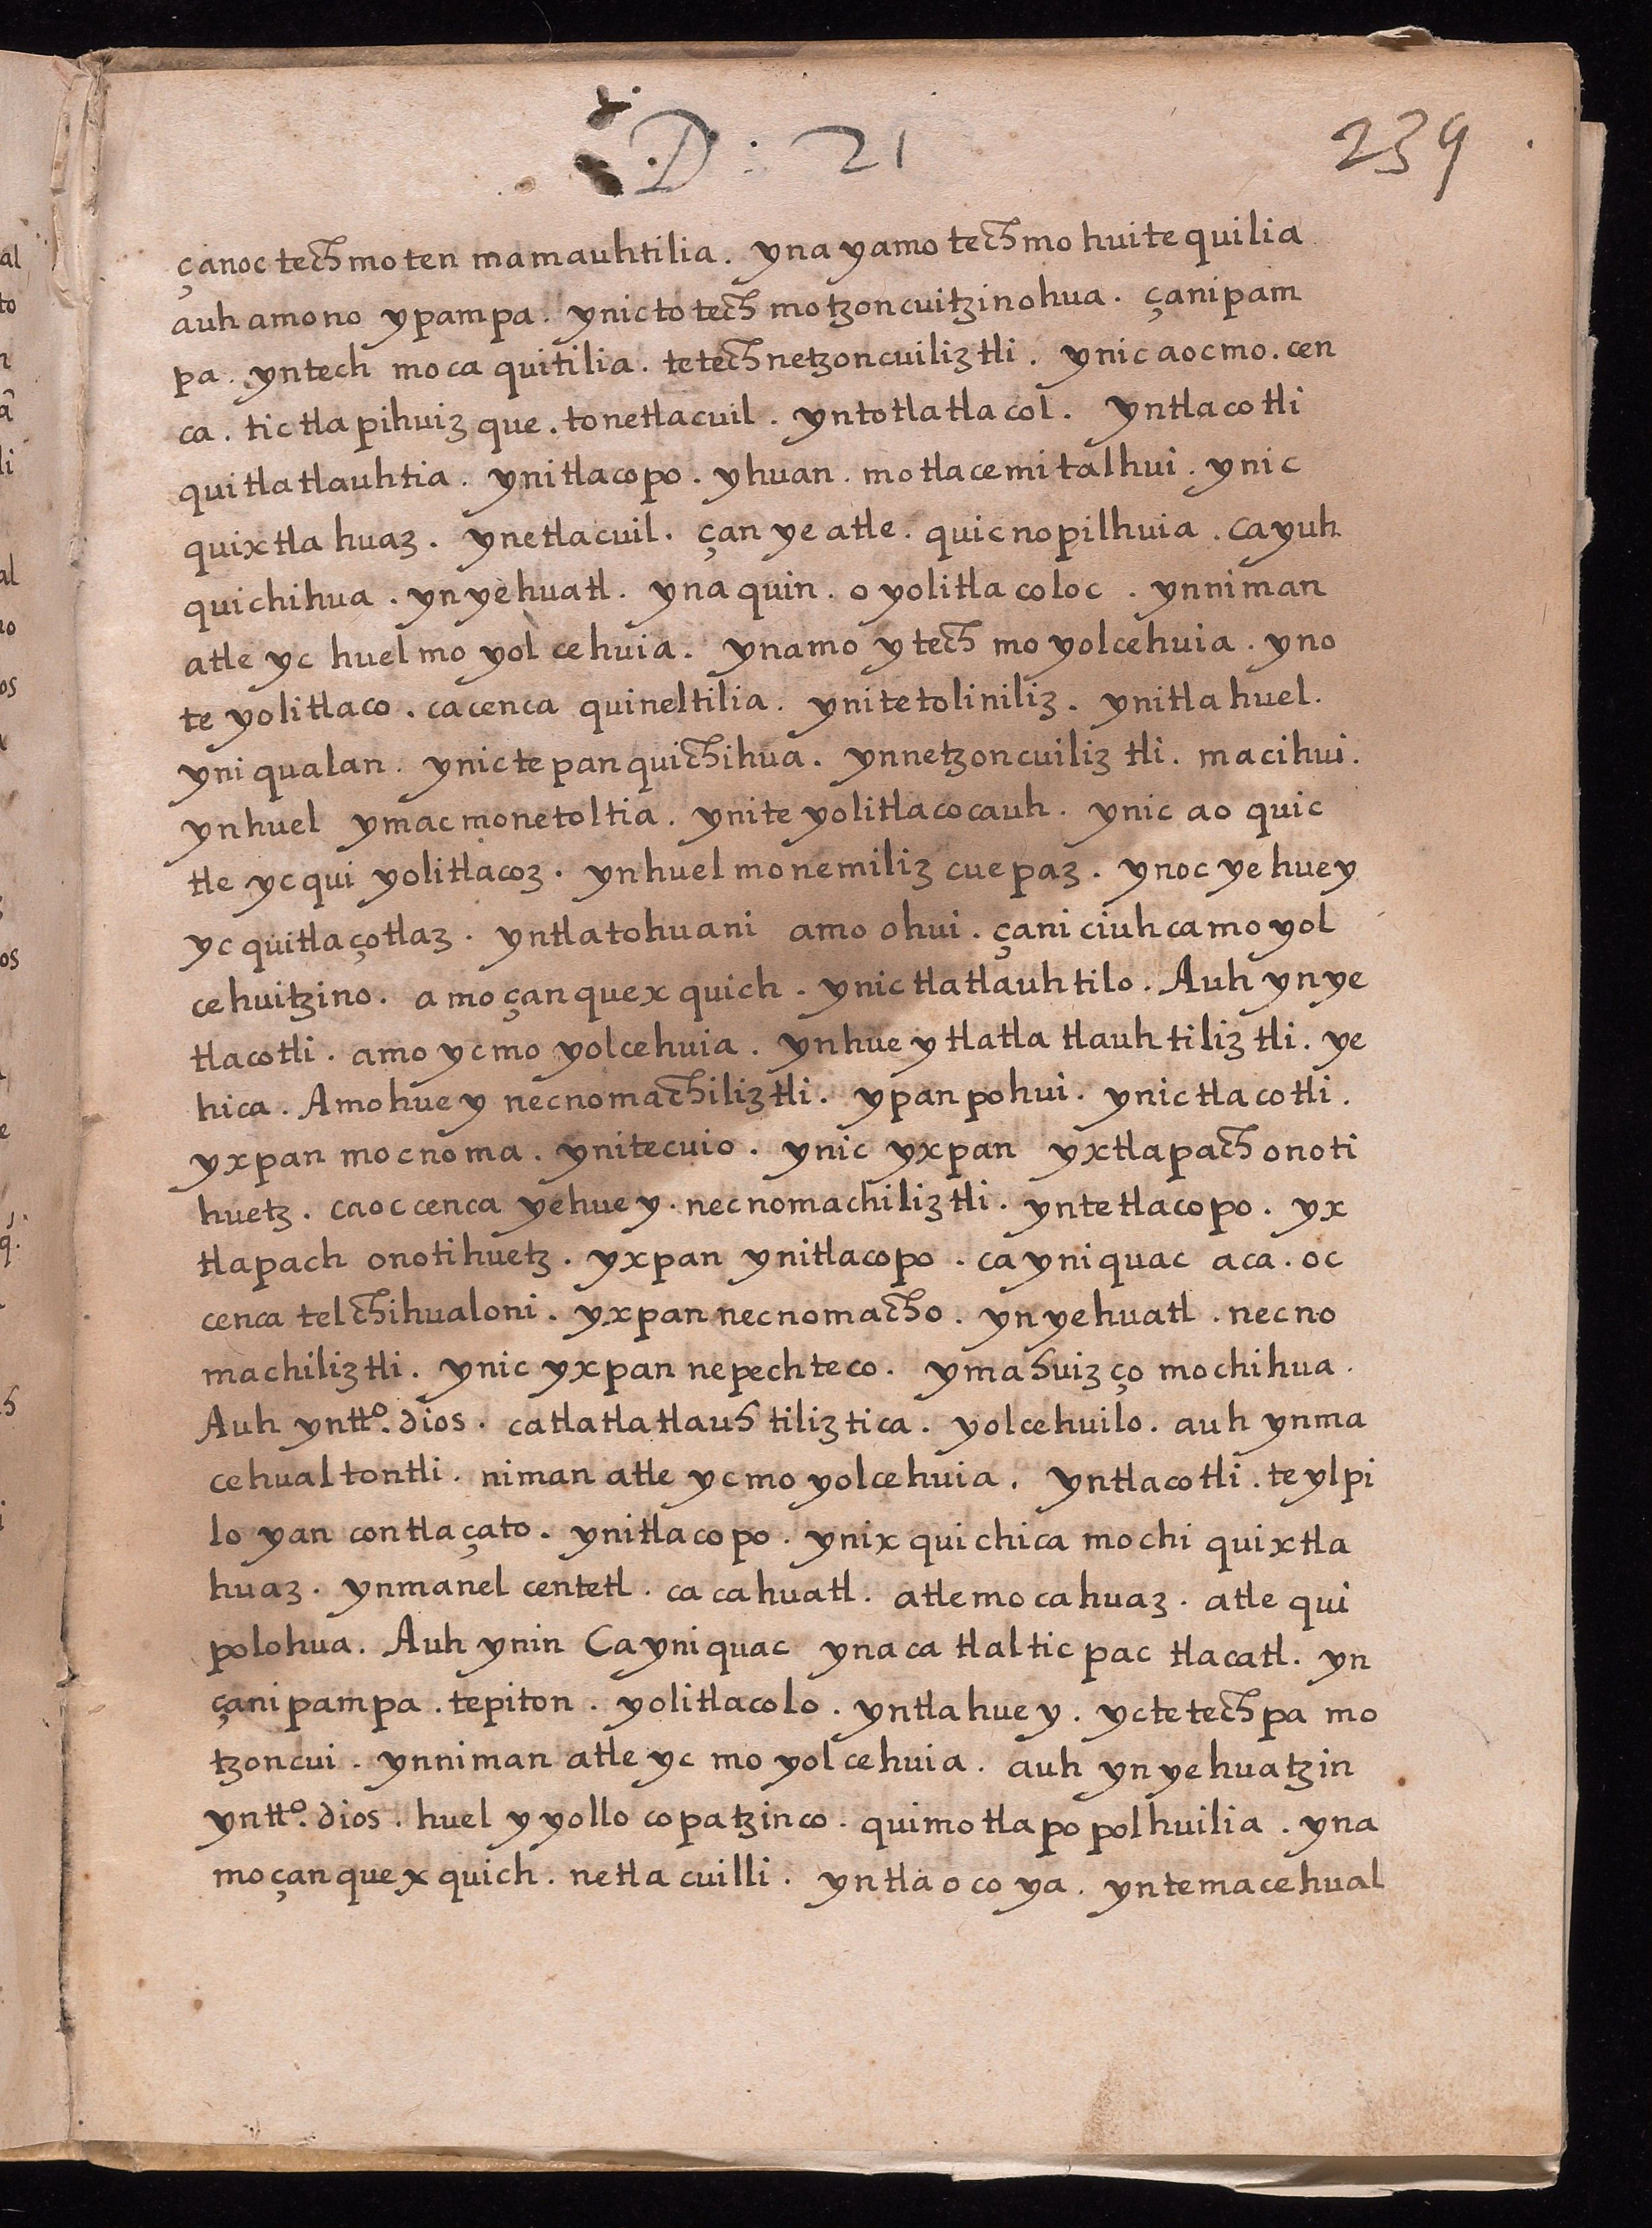 D : 21
239
çanoc techmoten mamauhtilia. yna yamo techmo huitequilia
auh amono ypampa. ynic totech motzoncuitzinohua. çanipam
pa. yntech mocaquitilia. tetechnetzoncuiliztli. ynic aocmo. cen
ca. tictlapihuizque. tonetlacuil. yntotlatlacol. yntlacotli
quitlatlauhtia. ynitlacopo. yhuan. motlacemitalhui. ynic
quixtlahuaz. ynetlacuil. çan ye atle. quicnopilhuia. cayuh
quichihua. ynyehuatl. ynaquin. o yolitlacoloc. ynniman
atle yc huelmo yolcehuia. ynamo ytech moyolcehuia. yno
te yolitlaco. cacenca quineltilia. ynitetoliniliz. ynitlahuel.
yniqualan. ynictepanquichihua. ynnetzoncuiliztli. macihui.
ynhuel ymacmonetoltia. ynite yolitlacocauh. ynic ao quic
tle ycqui yolitlacoz. ynhuelmonemilizcuepaz. ynoc yehuey
yc quitlaçotlaz. yntlatohuani amo ohui. çani ciuhcamoyol
cehuitzino. amoçanquexquich. ynictlatlauhtilo. Auh ynye
tlacotli. amo ycmo yolcehuia. ynhuey tlatlatlauhtiliztli. ye
hica. Amohuey necnomachiliztli. ypanpohui. ynictlacotli.
yxpan mocnoma. ynitecuio. ynic yxpan yxtlapach onoti
huetz. caoc cenca yehuey. necnomachiliztli. yntetlacopo. yx
tlapach onotihuetz. yxpan ynitlacopo. cayniquac aca. oc
cenca telchihualoni. yxpan necnomacho. ynyehuatl. necno
machiliztli. ynic yxpan nepechteco. ymahuizço mochihua.
Auh yntto. dios. catlatlatlauhtiliztica. yolcehuilo. auh ynma
cehualtontli. niman atle ycmo yolcehuia. yntlacotli. teylpi
lo yan contlaçato. ynitlacopo. ynixquichica mochi quixtla
huaz. ynmanel centetl. cacahuatl. atlemocahuaz. atle qui
polohua. Auh ynin Cayniquac ynaca tlalticpac tlacatl. yn
çanipampa. tepiton. yolitlacolo. yntlahuey. yctetechpa mo
tzoncui. ynniman atle yc moyolcehuia. auh ynyehuatzin
yntto. dios. huel yyollocopatzinco. quimotlapopolhuilia. yna
moçanquexquich. netlacuilli. yntlaocoya. yntemacehual